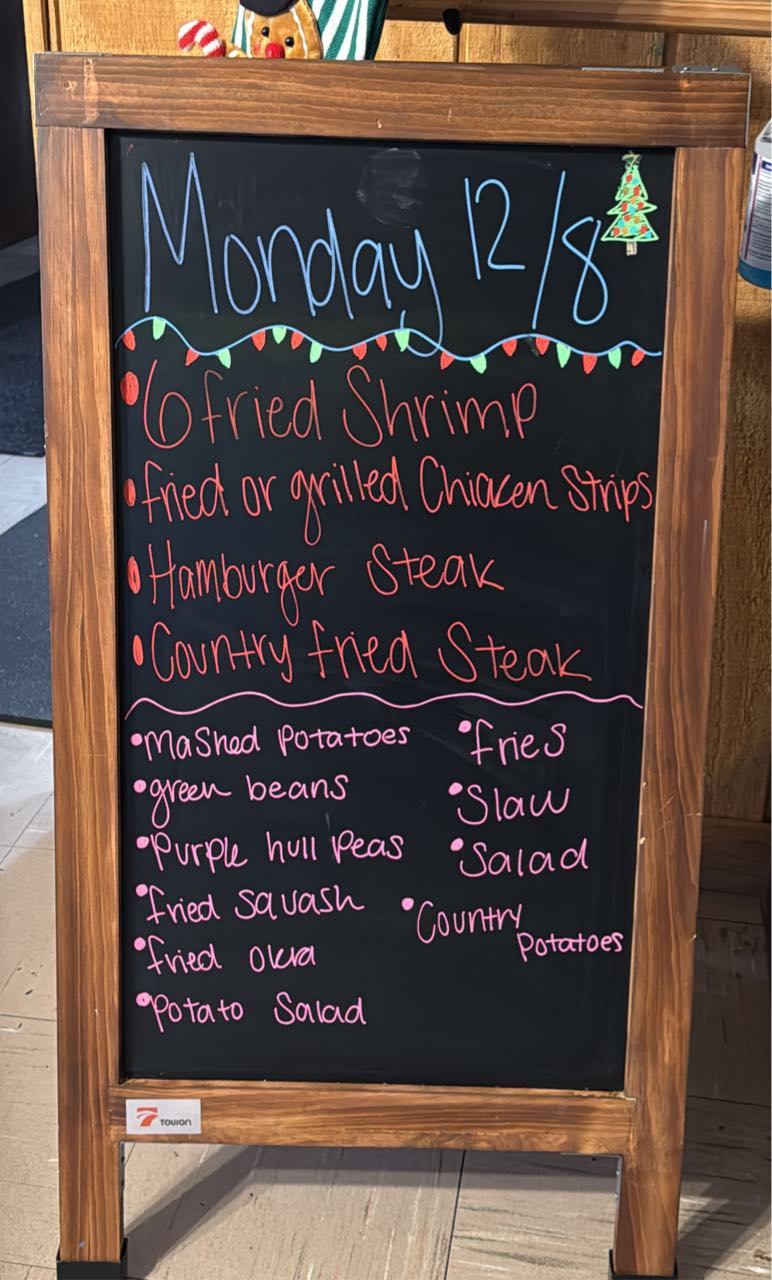 Monday 12/8
•6 fried Shrimp
•fried or grilled Chicken Strips
•Hamburger Steak
•Country fried Steak
•Mashed Potatoes
•green beans
•Purple hull Peas
•fried squash
•fried okra
•Potato Salad
•fries
•Slaw
•Salad
•Country
Potatoes
TOWON